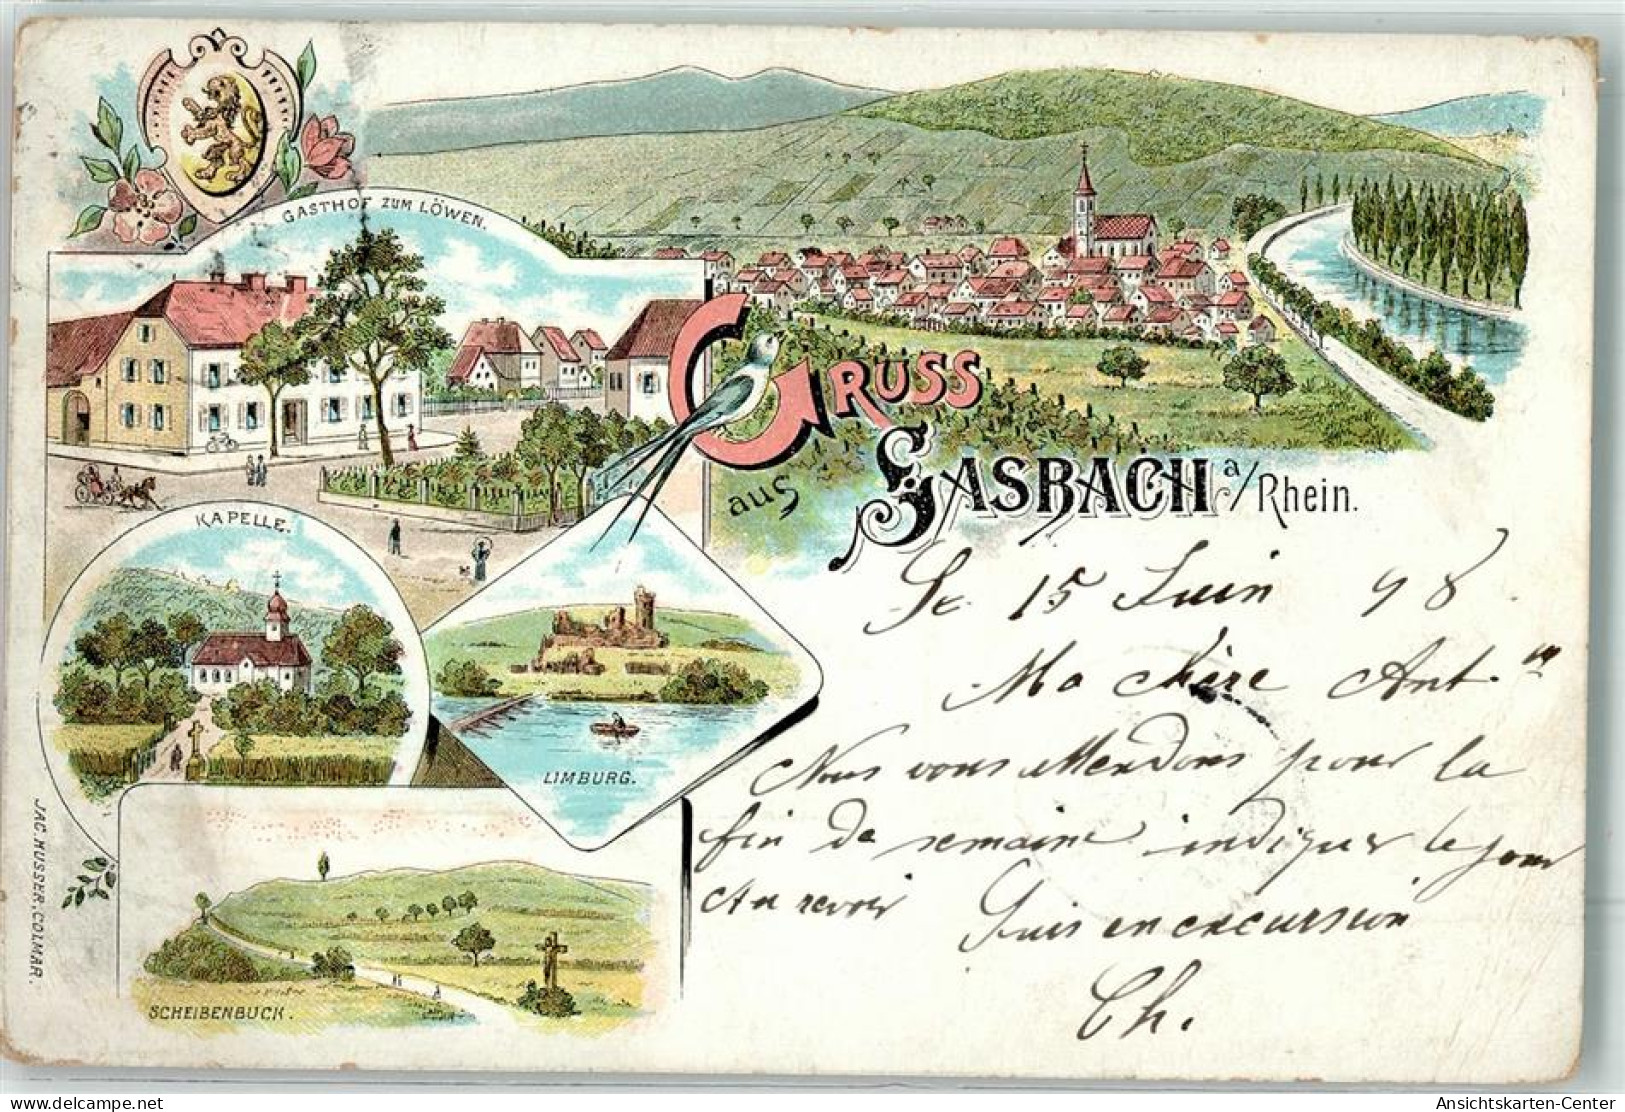 GASTHOF ZUM LÖWEN.
GRUSS
aus SASBACH a/Rhein.
KAPELLE.
LIMBURG.
SCHEIBENBUCK.
JAC. MUSSER, COLMAR.
Le 15 Juin 98
Ma chère Ant.
Nous vous attendons pour la
fin de semaine indiquer le jour
Au revoir Suis en excursion
Ch.
delcampe.net
Ansichtskarten-Center